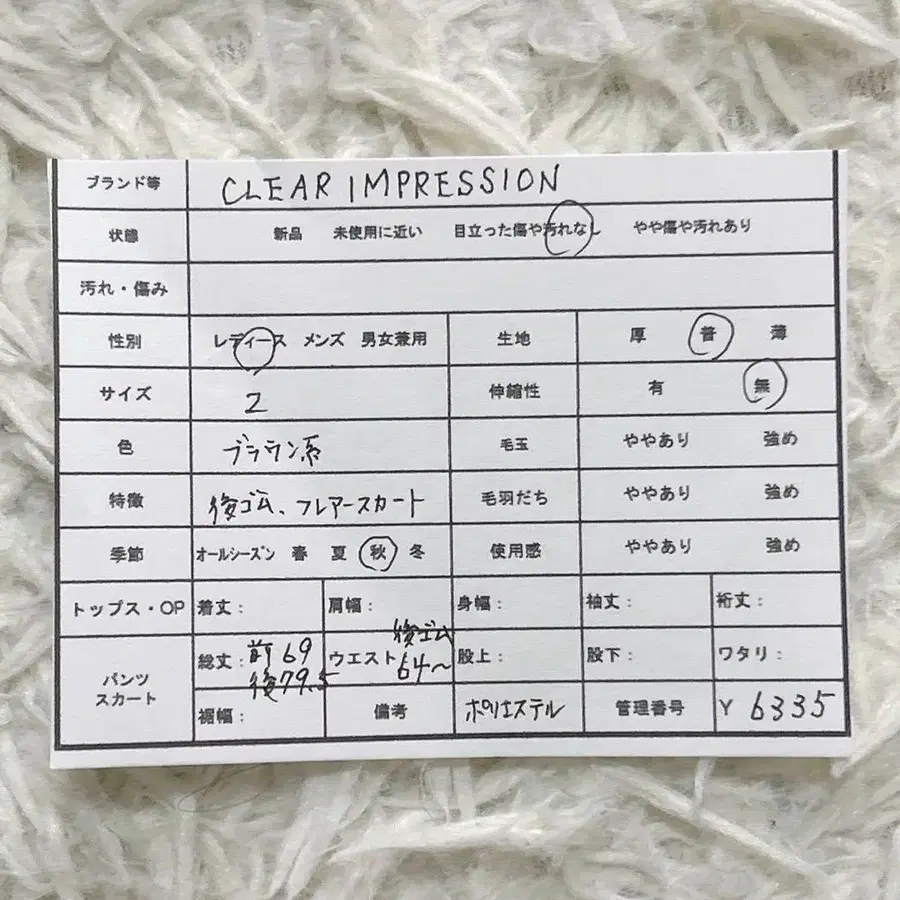 ブランド等 CLEAR IMPRESSION
状態 新品 未使用に近い 目立った傷や汚れなし やや傷や汚れあり
汚れ・傷み
性別 レディース メンズ 男女兼用 生地 厚 普 薄
サイズ 2 伸縮性 有 無
色 ブラウン系 毛玉 ややあり 強め
特徴 後ゴム、フレアースカート 毛羽だち ややあり 強め
季節 オールシーズン 春 夏 秋 冬 使用感 ややあり 強め
トップス・OP 着丈: 肩幅: 身幅: 袖丈: 裄丈:
パンツ スカート 総丈: 前69 後79.5 ウエスト 後ゴム 64〜 股上: 股下: ワタリ:
裾幅: 備考 ポリエステル 管理番号 Y 6335